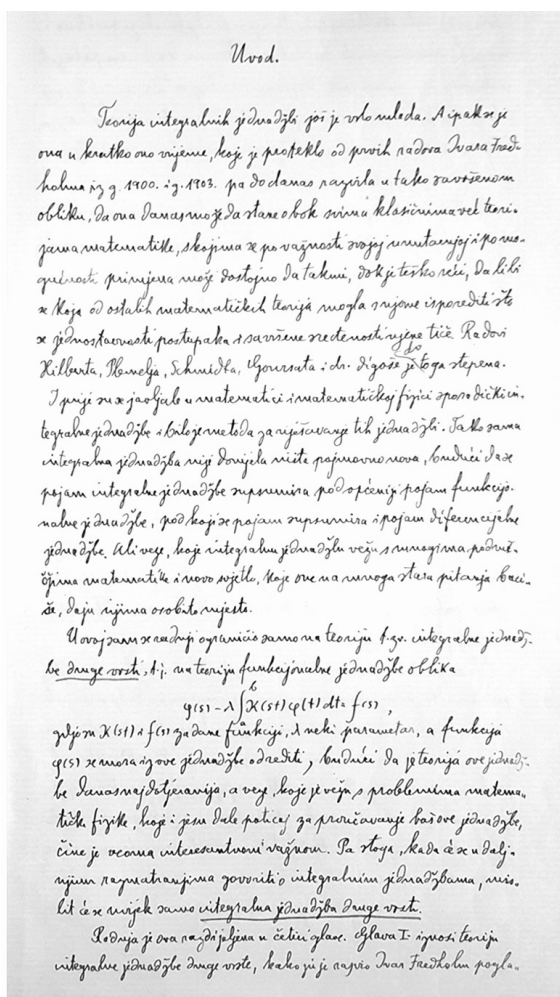 Uvod.
Teorija integralnih jednadžbi još je vrlo mlada. A ipak se je
ona u kratko ono vrijeme, koje je proteklo od prvih radova Ivara Fred-
holma iz g. 1900. i g. 1903. pa do danas razvila u tako savršenom
obliku, da ona danas može da stane o bok svima klasičnima već teori-
jama matematike, s kojima se po važnosti svojoj unutarnjoj i po mo-
gućnosti primjena može dostojno da takmi, dok je teško reći, da li bi
se koja od ostalih matematičkih teorija mogla s njome isporediti što
se jednostavnosti postupaka i savršene sređenosti njene tiče. Radovi
Hilberta, Plemelja, Schmidta, Goursata i dr. digoše je do toga stepena.
I prije su se javljale u matematici i matematičkoj fizici sporadički in-
tegralne jednadžbe i bilo je metoda za rješavanje tih jednadžbi. Tako sama
integralna jednadžba nije donijela ništa pojmovno nova, budući da se
pojam integralne jednadžbe supsumira pod općeniji pojam funkcijo-
nalne jednadžbe, pod koji se pojam supsumira i pojam diferencijalne
jednadžbe. Ali veze, koje integralnu jednadžbu vežu s mnogima područ-
čjima matematike i novo svjetlo, koje one na mnoga stara pitanja baci-
še, daju njima osobito mjesto.
U ovoj sam se radnji ograničio samo na teoriju t. zv. integralne jednadž-
be druge vrsti, t. j. na teoriju funkcijonalne jednadžbe oblika
φ(s) - λ ∫ K(st) φ(t) dt = f(s),
gdje su K(st) i f(s) zadane funkcije, λ neki parametar, a funkcija
φ(s) se mora iz ove jednadžbe odrediti, budući da je teorija ove jednadž-
be danas najdotjeranija, a veze, koje je vežu s problemima matema-
tičke fizike, koje i jesu dale poticaj za proučavanje baš ove jednadžbe,
čine je veoma interesantnom i važnom. Pa stoga, kada će se u dalj-
njim razmatranjima govoriti o integralnim jednadžbama, mis-
lit će se uvijek samo integralna jednadžba druge vrsti.
Radnja je ova razdijeljena u četiri glave. Glava I. iznosi teoriju
integralne jednadžbe druge vrste, kako ju je razvio Ivar Fredholm pogla-